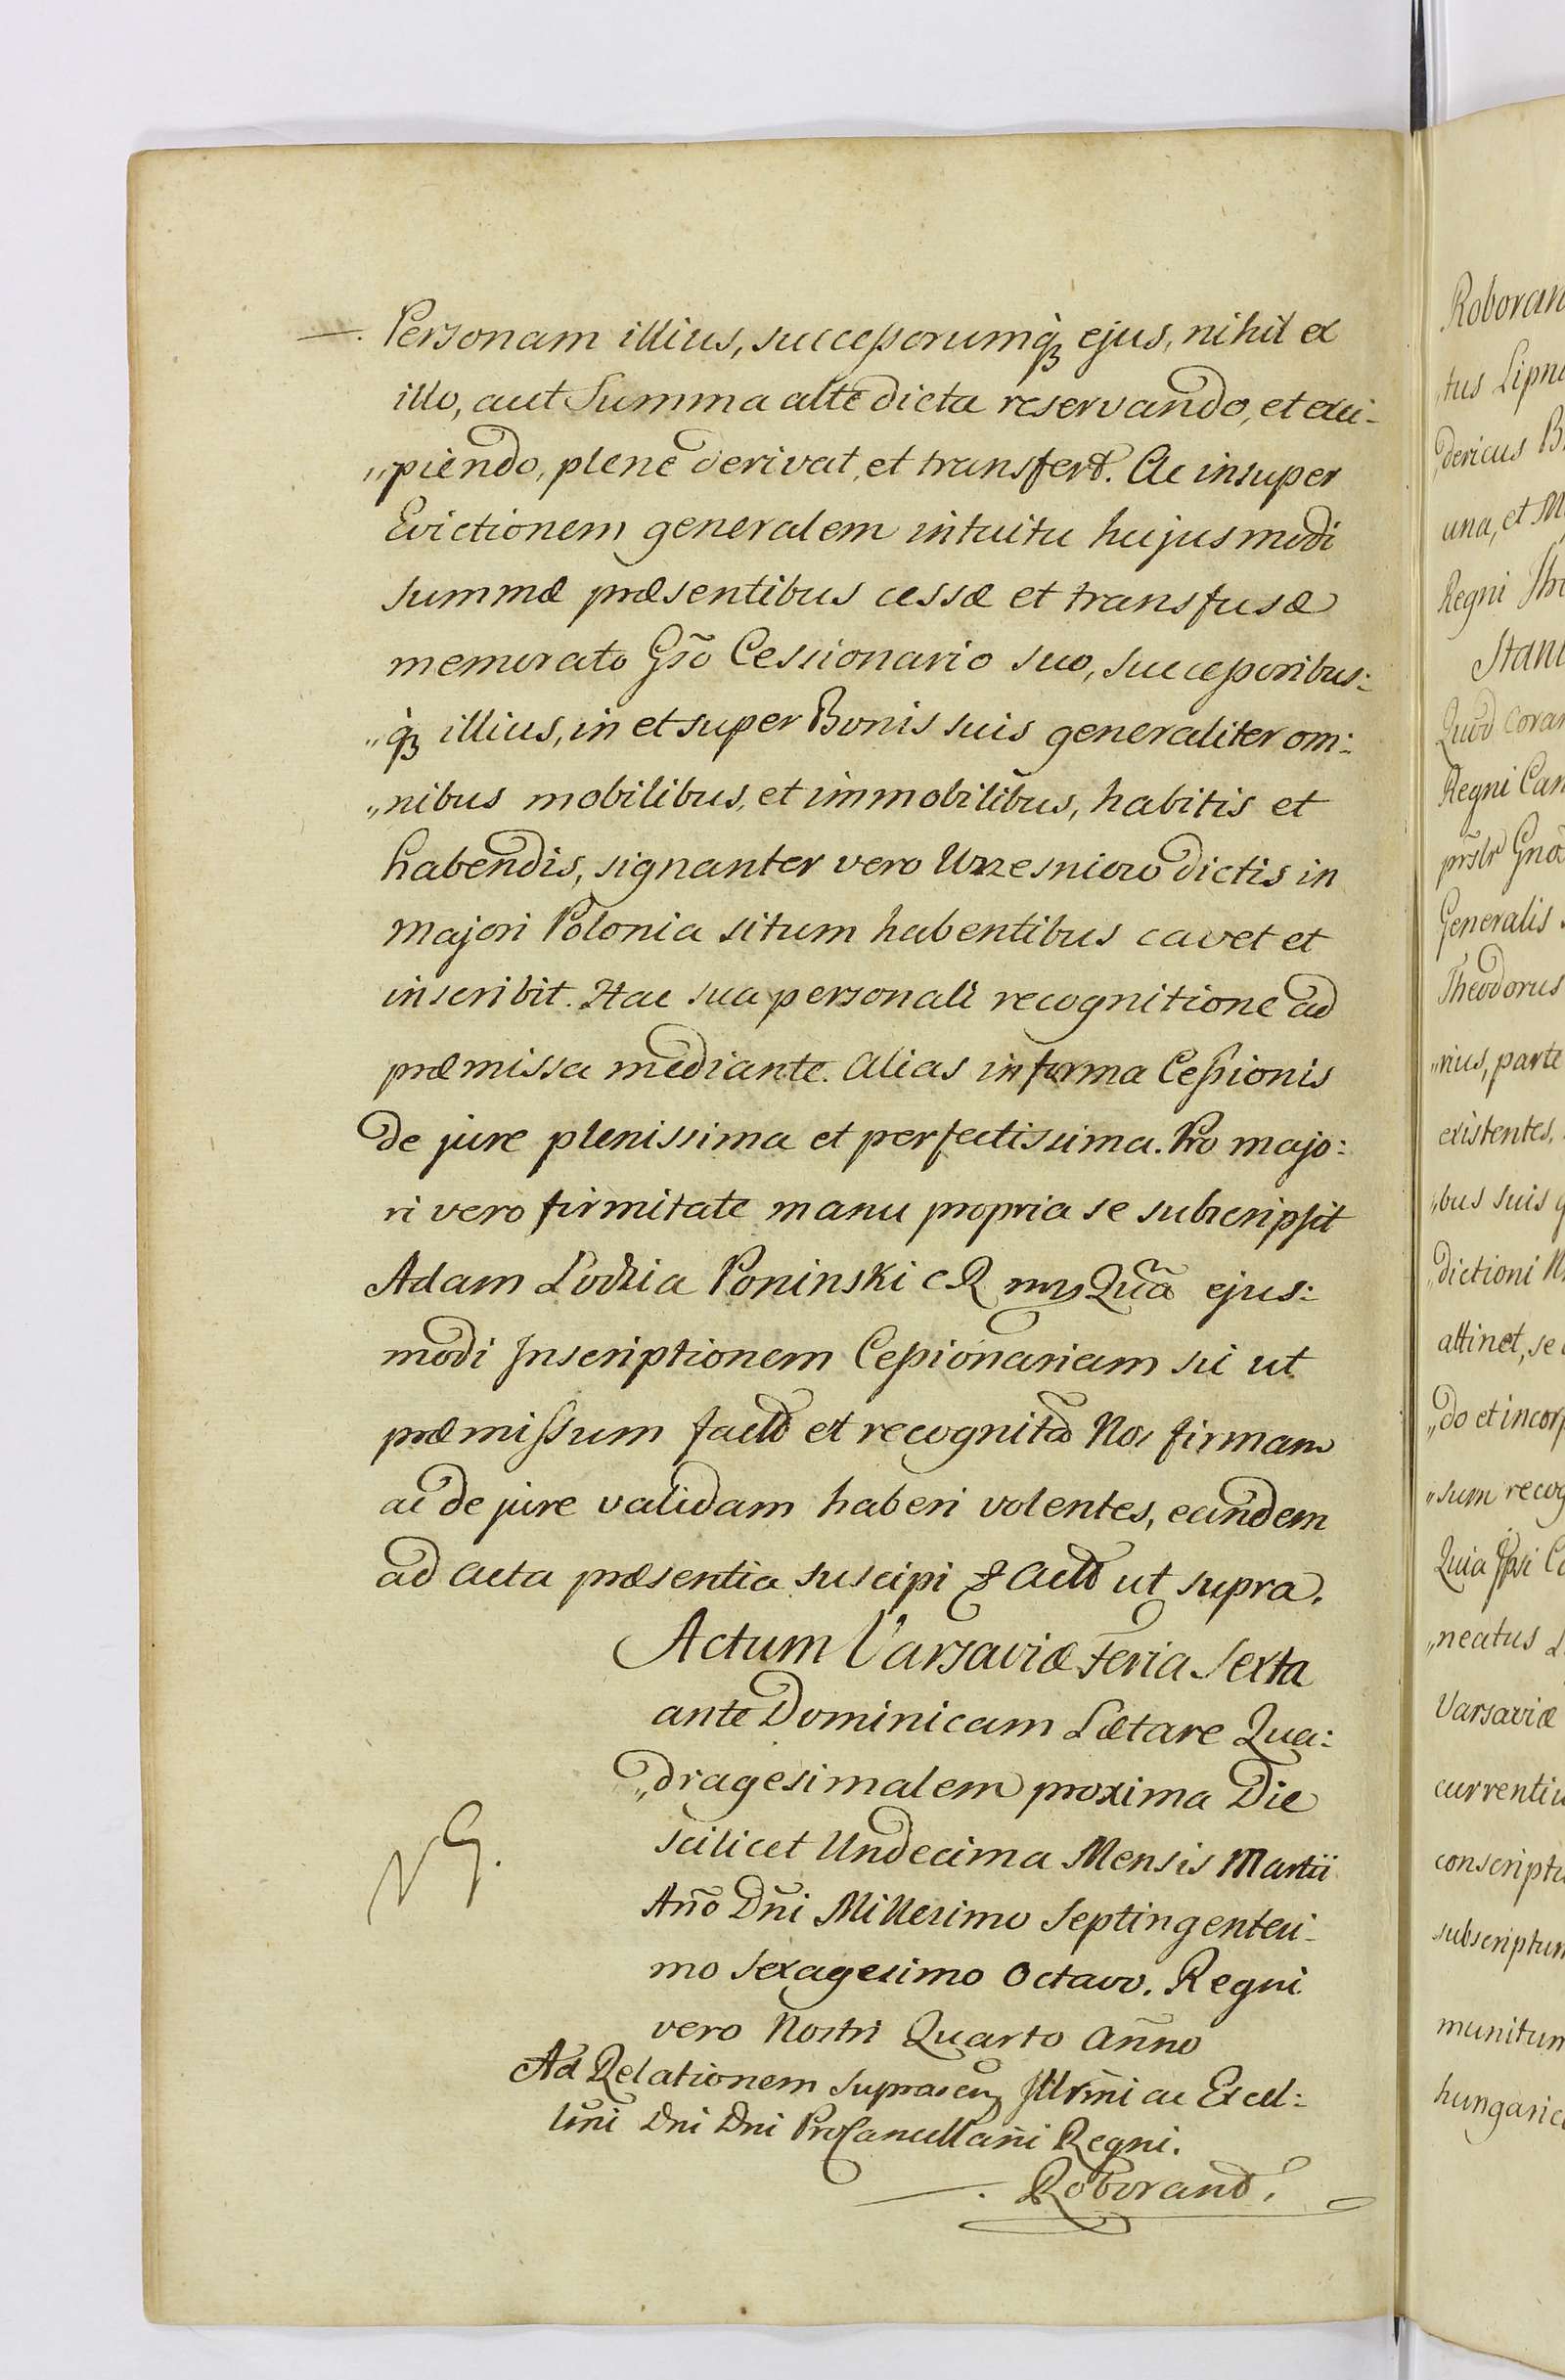 Personam illius, successorumq̀ꝫ ejus, nihil ex
illo, aut Summa alte dicta reservando, et exci-
„piendo, plene derivat, et transfert. Ac insuper
Evictionem generalem intuitu hujusmodi
summæ præsentibus cessæ et transfusæ
memorato Gso Cessionario suo, successoribus:
„q̀ꝫ illius, in et super Bonis suis generaliter om:
„nibus mobilibus, et immobilibus, habitis et
habendis, signanter vero Wrzesniow dictis in
Majori Polonia situm habentibus cavet et
inscribit. Hac sua personali recognitione ad
præmissa mediante. Alias in forma Cessionis
de jure plenissima et perfectissima. Pro majo:
ri vero firmitate manu propria se subscripsit
Adam Łodzia Poninski CR mp Qua ejus:
modi Inscriptionem Cessionariam sic ut
præmissum fact et recognita Nos firmam
ac de jure validam haberi volentes, eandem
ad Acta præsentia suscipi & Act ut supra.
Actum Varsaviæ Feria Sexta
ante Dominicam Lætare Qua:
„dragesimalem proxima Die
scilicet Undecima Mensis Martii
Año Dñi Millesimo Septingentesi-
mo Sexagesimo Octavo. Regni
vero Nostri Quarto Anno
Ad Relationem Suprascr Illrmi ac Excell:
Dni Dni ProCancellarii Regni.
Roborand.
NG.
Roboran
„tus Lipn
„dericus B
una, et M
Regni
Stani
Quod cora
Regni Can
Gno
Generalis
Theodorus
„rius, parte
existentes,
„bus suis
dictioni
attinet, se
„do et incorp
„sum recog
Quia Ipsi C
„neatus
Varsaviæ
currenti
conscript
subscriptu
munitum
hungaric